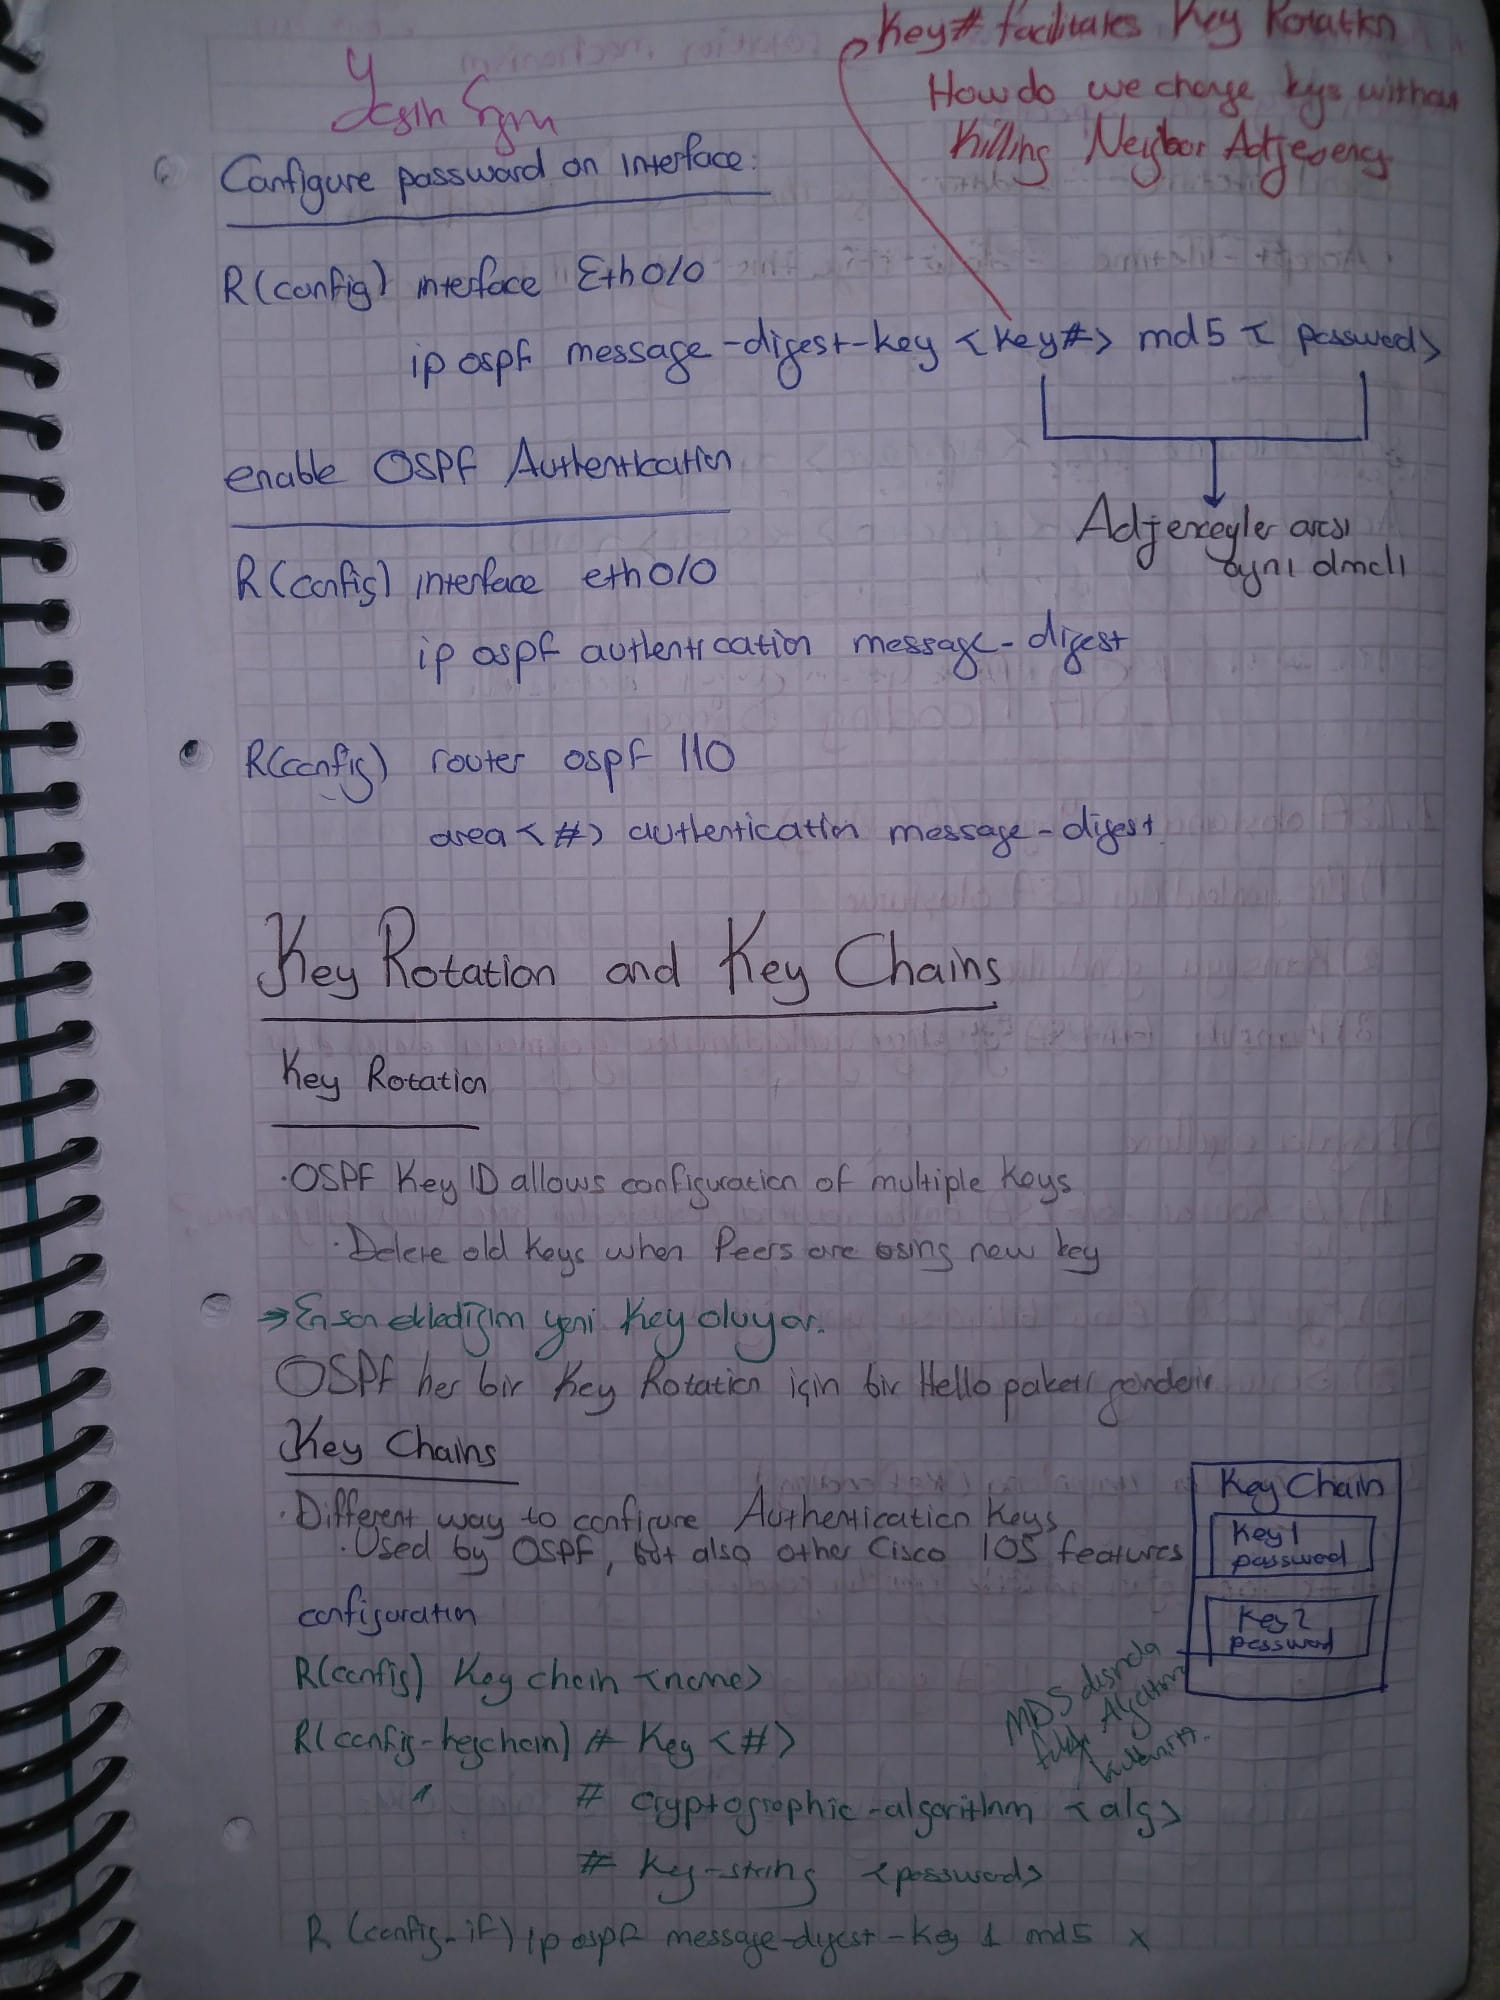 Key# facilitates Key Rotation
How do we change keys without
Killing Neigbor Adjecency
Configure password on interface:
R(config) interface Eth0/0
ip ospf message-digest-key <key#> md5 < password>
enable OSPF Authentication
Adjenceyler arası
aynı olmalı
R(config) interface eth0/0
ip ospf authentication message-digest
R(config) router ospf 110
area <#> authentication message-digest
Key Rotation and Key Chains
Key Rotation
·OSPF Key ID allows configuration of multiple Keys
·Delete old keys when Peers are using new key
→ En son eklediğim yeni Key oluyor.
OSPF her bir Key Rotation için bir Hello paketi gönderir
Key Chains
·Different way to configure Authentication Keys
·Used by OSPF, but also other Cisco IOS features
Key Chain
Key1
password
Key2
password
configuration
R(config) Key chain <name>
R(config-keychain) # Key <#>
MD5 dışında
Algoritma
# cryptographic-algorithm <alg>
# Key-string <password>
R (config-if) ip ospf message-digest-key 1 md5 x